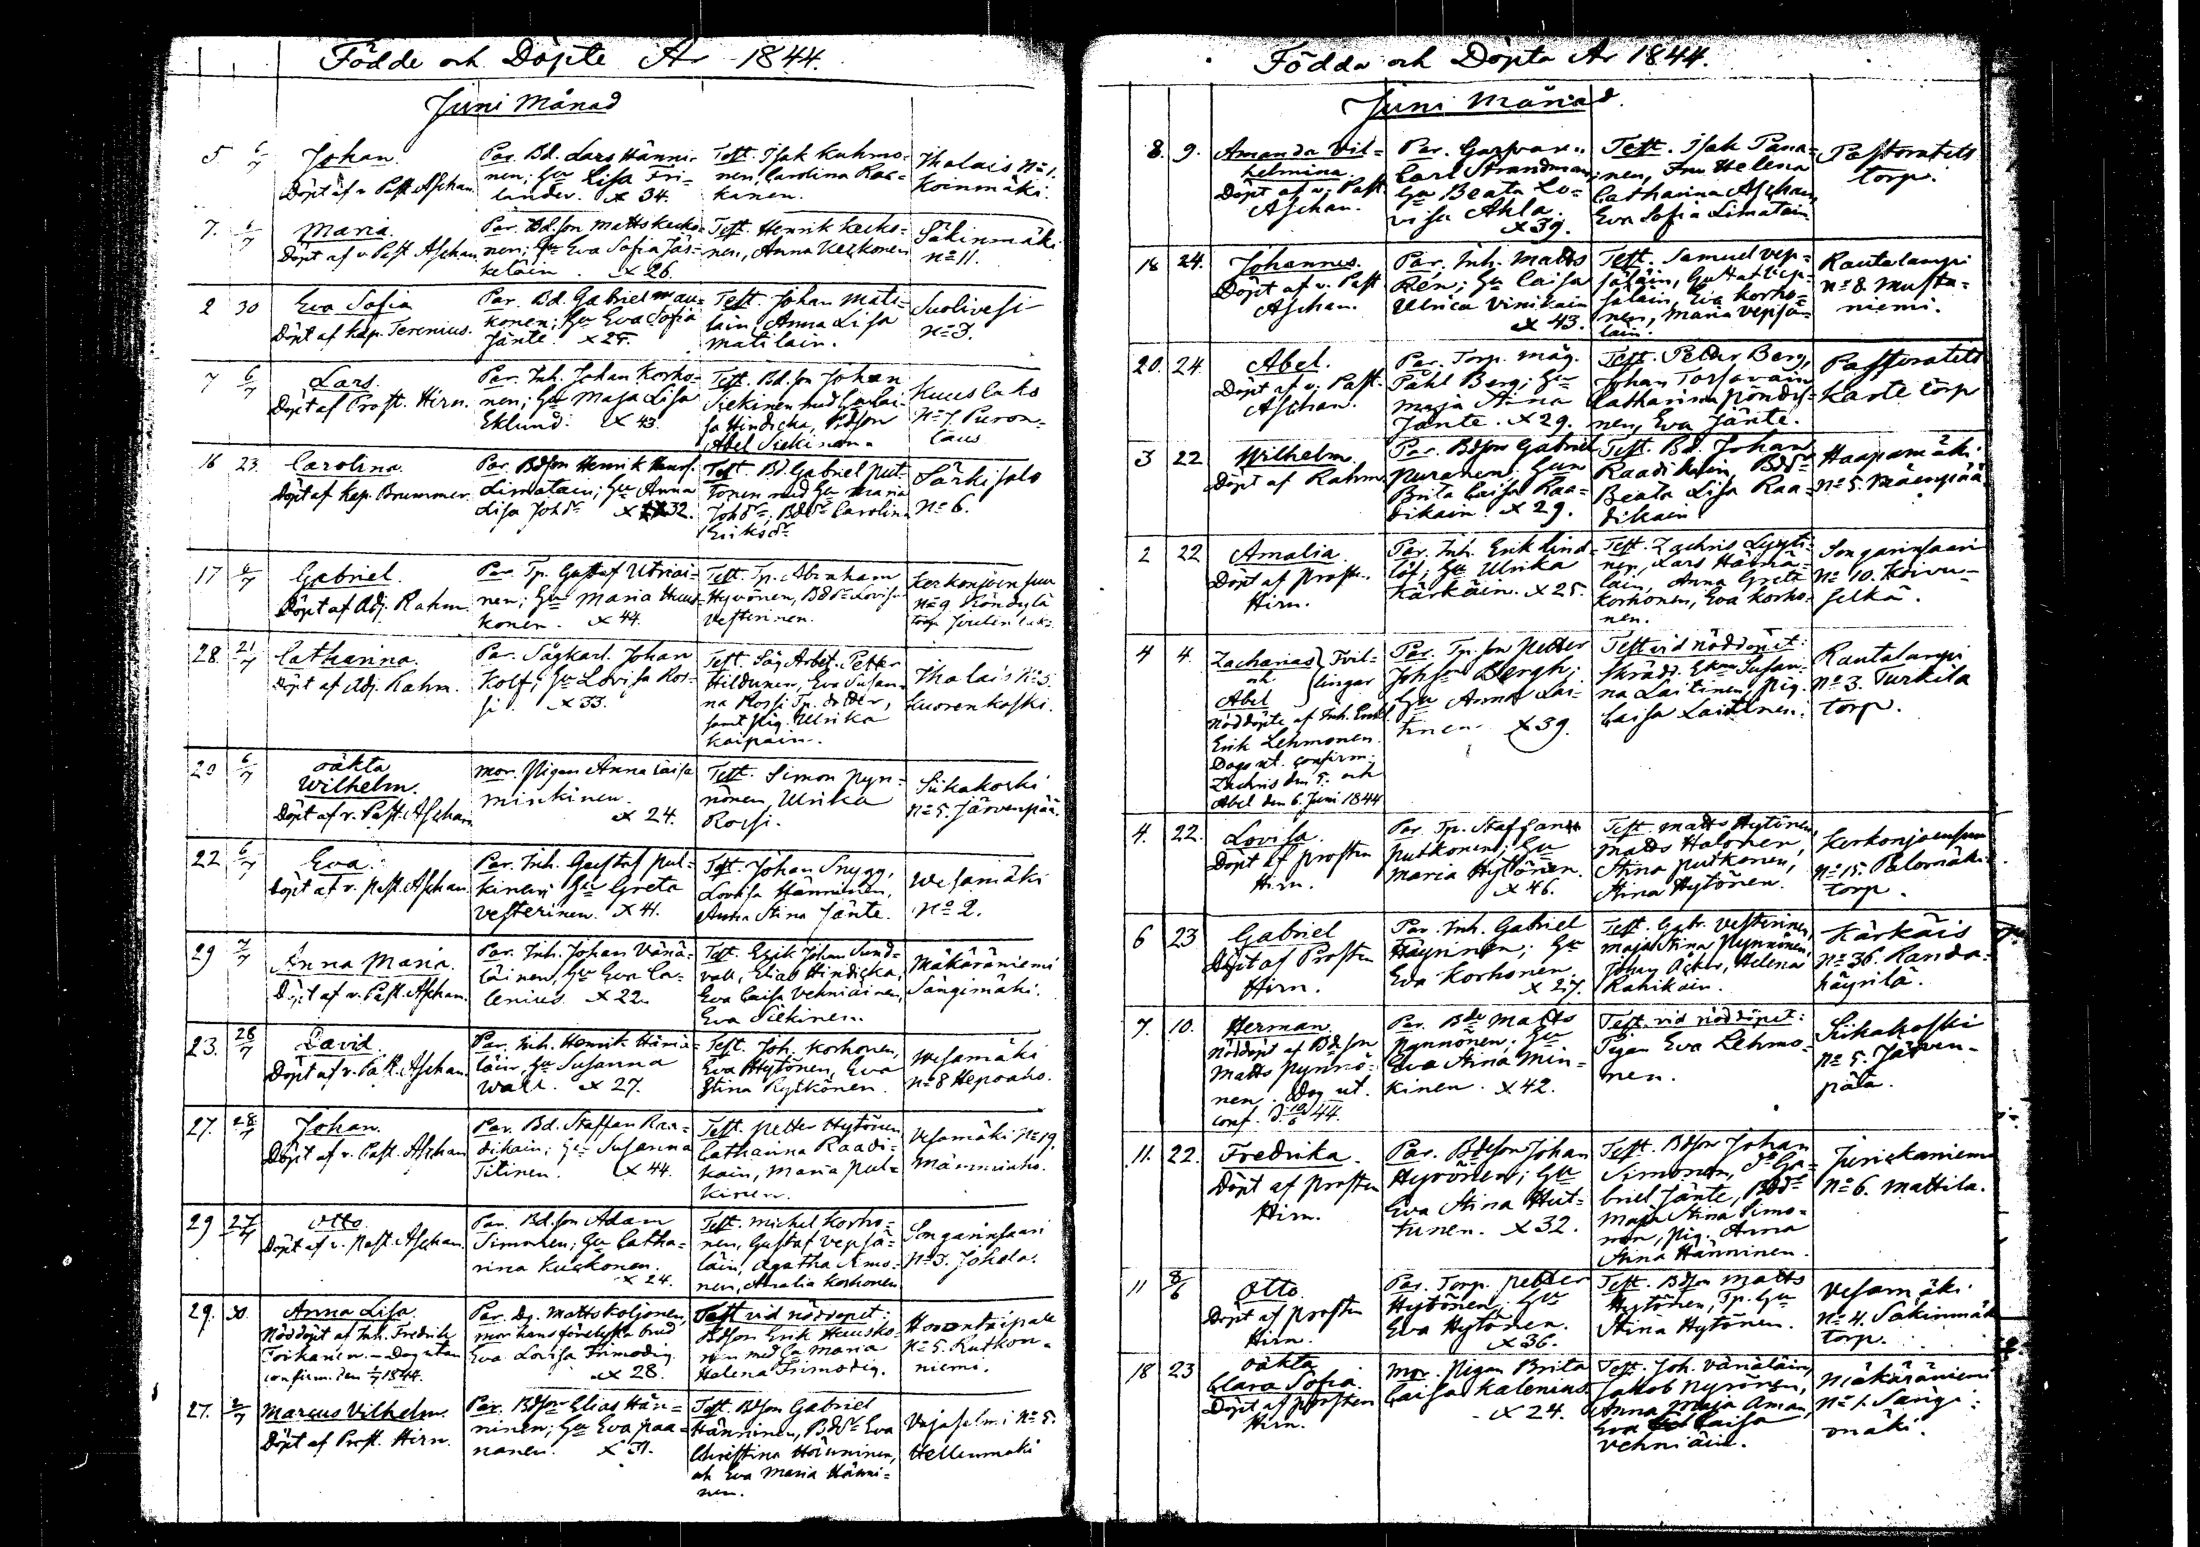 Födde och Döpte År 1844.
Juni Månad
5 6/7 Johan.
Döpt af v. Past. Aschan.
Par. Bd. Lars Hänni-
nen; Hu Lisa Fri-
lander. x 34.
Test. Isak Kuhmo-
nen, Carolina Ras-
kanen.
Ihalais No 1.
Koinmäki.
7. 6/7 Maria.
Döpt af v. Past. Aschan
Par. Bd.son Matts Kecko-
nen; Hu Eva Sofia Jäs-
keläin. x 26.
Test. Henrik Kecko-
nen, Anna Keckonen
Säkinmäki
No 11.
2 30 Eva Sofia
Döpt af Kap. Terenius.
Par. Bd. Gabriel Mau-
konen; Hu Eva Sofia
Jänte.
Test. Johan Mati-
lain, Anna Lisa
Matilain.
Suolivesi
No 3.
7 6/7 Lars.
Döpt af Prost. Hirn.
Par. Inh. Johan Korho-
nen; Hu Maja Lisa
Eklund. x 43.
Test. Bd.son Johan
Siekinen med Hu Cai-
sa Hindicka, Bdson
Abel Siekinen.
Kuuslaks
No 7. Puron-
laus
16 23. Carolina.
Döpt af Kap. Brummer
Par. Bdson Henrik
Limatain; Hu Anna
Lisa Johdr x 32.
Test. Bd. Gabriel Put-
tonen med Hu Maria
Johdr. Bddr Carolina
Eriksdr
Särkisalo
No 6.
17 6/7 Gabriel.
Döpt af Adj. Rahm.
Par. Tp. Gustaf Utriai-
nen; Hu Maria Huus-
konen. x 44.
Test. Tp. Abraham
Hyvönen, Bddr Lovisa
Vesterinen.
Kerkonjoensuu
No 9 Pöndylä
torp
28. 21/7 Catharina.
Döpt af Adj. Rahm.
Par. Sågkarl. Johan
Kolf; Hu Lovisa Ros-
si. x 33.
Test. Såg Arbet. Petter
Hildunen, Eva Susan-
na Rossi Tp. dotter,
samt Pig. Ulrika
Kaipain.
Ihalais No 5.
Kuorenkoski.
20 6/7 oäkta
Wilhelm.
Döpt af v. Past. Aschan
Mor. Pigan Anna Caisa
Minkinen.
x 24.
Test. Simon Pyn-
nönen, Ulrika
Rossi.
Siikakoski
No 5. Järvenpää.
22 6/7 Eva.
Döpt af v. Past. Aschan
Par. Inh. Gustaf Pul-
kinen; Hu Greta
Vesterinen. x 41.
Test. Johan Snygg,
Lovisa Hänninen,
Anna Stina Jänte.
Wesamäki
No 2.
29 7/7 Anna Maria.
Döpt af v. Past. Aschan.
Par. Inh. Johan Vänä-
läinen, Hu Eva Ca-
lenius. x 22.
Test. Erik Johan Sund-
vall, Elias Hindicka,
Eva Caisa Vehniäinen,
Eva Siekinen.
Mäkäräniemi
Sängimäki.
23. 28/7 David.
Döpt af v. Past. Aschan.
Par. Inh. Henrik Hämä-
läin, Hu Susanna
Wall. x 27.
Test. Joh. Korhonen,
Eva Hytönen, Eva
Stina Rytkönen.
Wesamäki
No 8 Hepoaho.
27. 28/7 Johan.
Döpt af v. Past. Aschan
Par. Bd. Staffan Raa-
dikain; Hu Susanna
Titinen. x 44.
Test. Petter Hytönen
Catharina Raadi-
kain, Maria Pul-
kinen.
Vesamäki No 19.
29 27/7 Otto.
Döpt af v. Past. Aschan.
Par. Bd.son Adam
Simonen; Hu Catha-
rina Kuckonen.
x 24.
Test. Michel Korho-
nen, Gustaf Vepsä-
läin, Agatha Simo-
nen, Amalia Korhonen
Songarinsaari
No 3. Jokela.
29. 30. Anna Lisa.
Nöddöpt af Inh. Fredrik
Toikanen. - Dop utan
confirm. den 1/7 1844.
Par. Dg. Matts Koljonen,
mor hans förelyste brud
Eva Lovisa Frimodig
x 28.
Test vid nöddopet:
Bdson Erik Huusko-
nen med Hu Maria
Helena Frimodig.
No 5. Rutkon-
niemi.
27. 2/7 Marcus Vilhelm.
Döpt af Prost. Hirn.
Par. Bdson Elias Hän-
ninen; Hu Eva Paa-
nanen. x 31.
Test. Bdson Gabriel
Hänninen, Bddr Eva
Christina Hänninen,
och Eva Maria Hänni-
nen.
Vajasalmi No 5.
Hellinmäki
Födda och Döpta År 1844.
Juni Månad.
8. 9. Amanda Vil-
helmina.
Döpt af v. Past
Aschan.
Par. Garfvar.
Carl Strandman
Hu Beata Lo-
visa Ahla.
x 39.
Test. Isak Pana-
inen, Fru Helena
Catharina Aschan,
Eva Sofia Limatain
Pastoratets
torp.
18 24. Johannes.
Döpt af v. Past
Aschan.
Par. Inh. Matts
Rén; Hu Caisa
Ulrica Vinikain
x 43.
Test. Samuel Vep-
säläin, Gustaf Vep-
säläin, Eva Korho-
nen, Maria Vepsä-
läin.
Rautalampi
No 8. Musta-
niemi.
20. 24. Abel.
Döpt af v. Past.
Aschan.
Par. Torp. måg.
Påhl Berg; Hu
Maja Stina
Jänte. x 29.
Test. Petter Berg,
Johan Torsavain
Catharina Pöndy-
nen, Eva Jänte.
Pastoratets
Karte torp
3 22 Wilhelm
Döpt af Rahm
Par. Bdson Gabriel
Puranen; Hun
Brita Caisa Raa-
dikain. x 29.
Test. Bd. Johan
Raadikain, Bddr
Beata Lisa Raa-
dikain
Haapamäki
No 5. Mäenpää
2 22 Amalia.
Döpt af Prost.
Hirn.
Par. Inh. Erik Lind-
löf; Hu Ulrika
Kärkäin. x 25.
Test. Zachris Lyyti-
nen, Lars Hämä-
läin, Anna Greta
Korhonen, Eva Korho-
nen.
Songarinsaari
No 10. Koivu-
selkä.
4 4. Zacharias
och
Abel
Tvil-
lingar
Nöddöpte af Inh.
Erik Lehmonen.
Dops ut. confirm.
Zachris den 5. och
Abel den 6. Juni 1844
Par. Tp. son Petter
Johsn Bergh;
Hu Anna Lai-
tinen x 39.
Test vid nöddopet:
Skrädd. Susan-
na Laitinen, Pig.
Caisa Laitinen.
Rautalampi
No 3. Turkila
torp.
4. 22. Lovisa.
Döpt af Prosten
Hirn.
Par. Tp. Staffan
Putkonen; Hu
Maria Hytönen.
x 46.
Test. Matts Hytönen,
Matts Halonen,
Stina Putkonen,
Stina Hytönen.
Kerkonjoensuu
No 15. Palomäki
torp.
6 23 Gabriel
Döpt af Prosten
Hirn.
Par. Inh. Gabriel
Häyrinen; Hu
Eva Korhonen.
x 27.
Test. Gabr. Vesterinen,
Maja Stina Pynnönen,
Johan Åcker, Helena
Rahikain.
Kärkäis
No 36. Randa-
häyrilä.
7. 10. Herman.
Nöddöpt af Bdson
Matts Pynnö-
nen. Dop ut.
conf. d. 10/6 44.
Par. Bde Matts
Pynnönen. Hu
Eva Stina Min-
kinen. x 42.
Test. vid nöddopet:
Pigan Eva Lehmo-
nen.
Siikakoski
No 5. Järven-
pää.
11. 22. Fredrika.
Döpt af Prosten
Hirn.
Par. Bdeson Johan
Hyvönen; Hu
Eva Stina Hut-
tunen. x 32.
Test. Bdson Johan
Simonen, Do Ga-
briel Jänte, Bddr
Maja Stina Simo-
nen, Pig. Anna
Stina Hänninen.
No 6. Mattila.
11 8/6 Otto.
Döpt af Prosten
Hirn.
Par. Torp. Petter
Hytönen; Hu
Eva Hytönen.
x 36.
Test. Bdson Matts
Hytönen, Tp. Hu
Stina Hytönen.
Vesamäki
No 4. Säkinmäki
torp.
18 23 oäkta
Clara Sofia.
Döpt af Prosten
Hirn.
Mor. Pigan Brita
Caisa Kalenius.
x 24.
Test. Joh. Vänäläin,
Jakob Nyrönen,
Anna Maja Aman,
Eva Caisa
Vehniäin.
Mäkäräniemi
No 1. Sängi-
mäki.